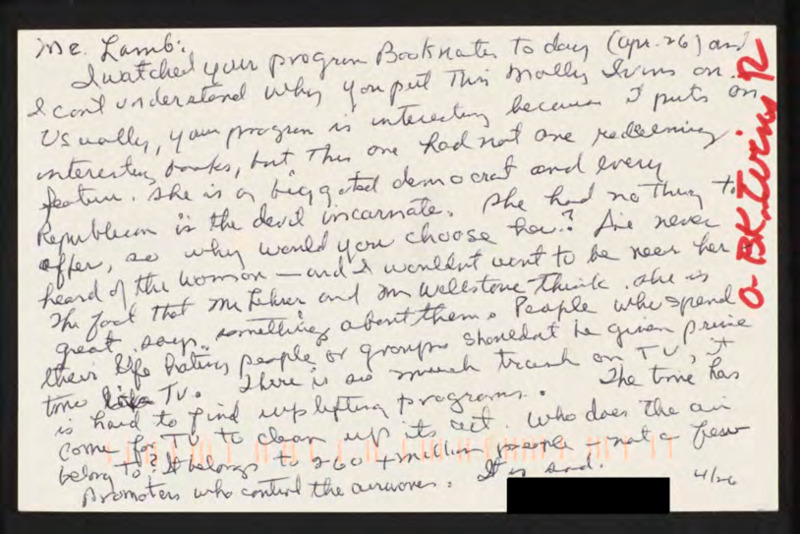 Mr. Lamb:
I watched your program Booknotes today (Apr. 26) and
I cant understand why you put this Molly Ivins on.
Usually, your program is interesting because it puts on
interesting books, but this one had not one redeeming
feature. She is a biggoted democrat and every
Republican is the devil incarnate. She had nothing to
offer, so why would you choose her? I've never
heard of the woman — and I wouldnt want to be near her
The fact that Mr Lehrer and Mr Wellstone think she is
great says something about them. People who spend
their life hating people or groups shouldnt be given prime
time TV. There is so much trash on TV, it
is hard to find uplifting programs. The time has
come for TV to clean up its act. Who does the air
belong to? It belongs to 260 + million people not a few
promoters who control the airwaves. It is sad.
4/26
a BK Ivins R